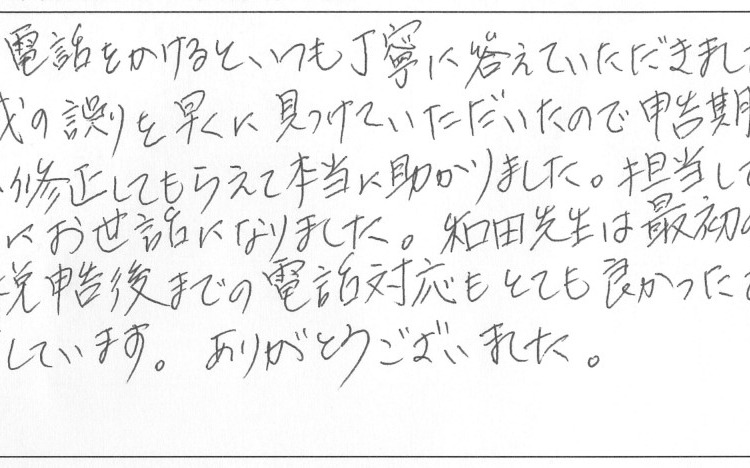 電話をかけるといつも丁寧に答えていただきまし
の誤りを早くに見つけていただいたので申告期
修正してもらえて本当に助かりました。担当し
にお世話になりました。和田先生は最初
税申告後までの電話対応もとても良かった
しています。ありがとうございました。